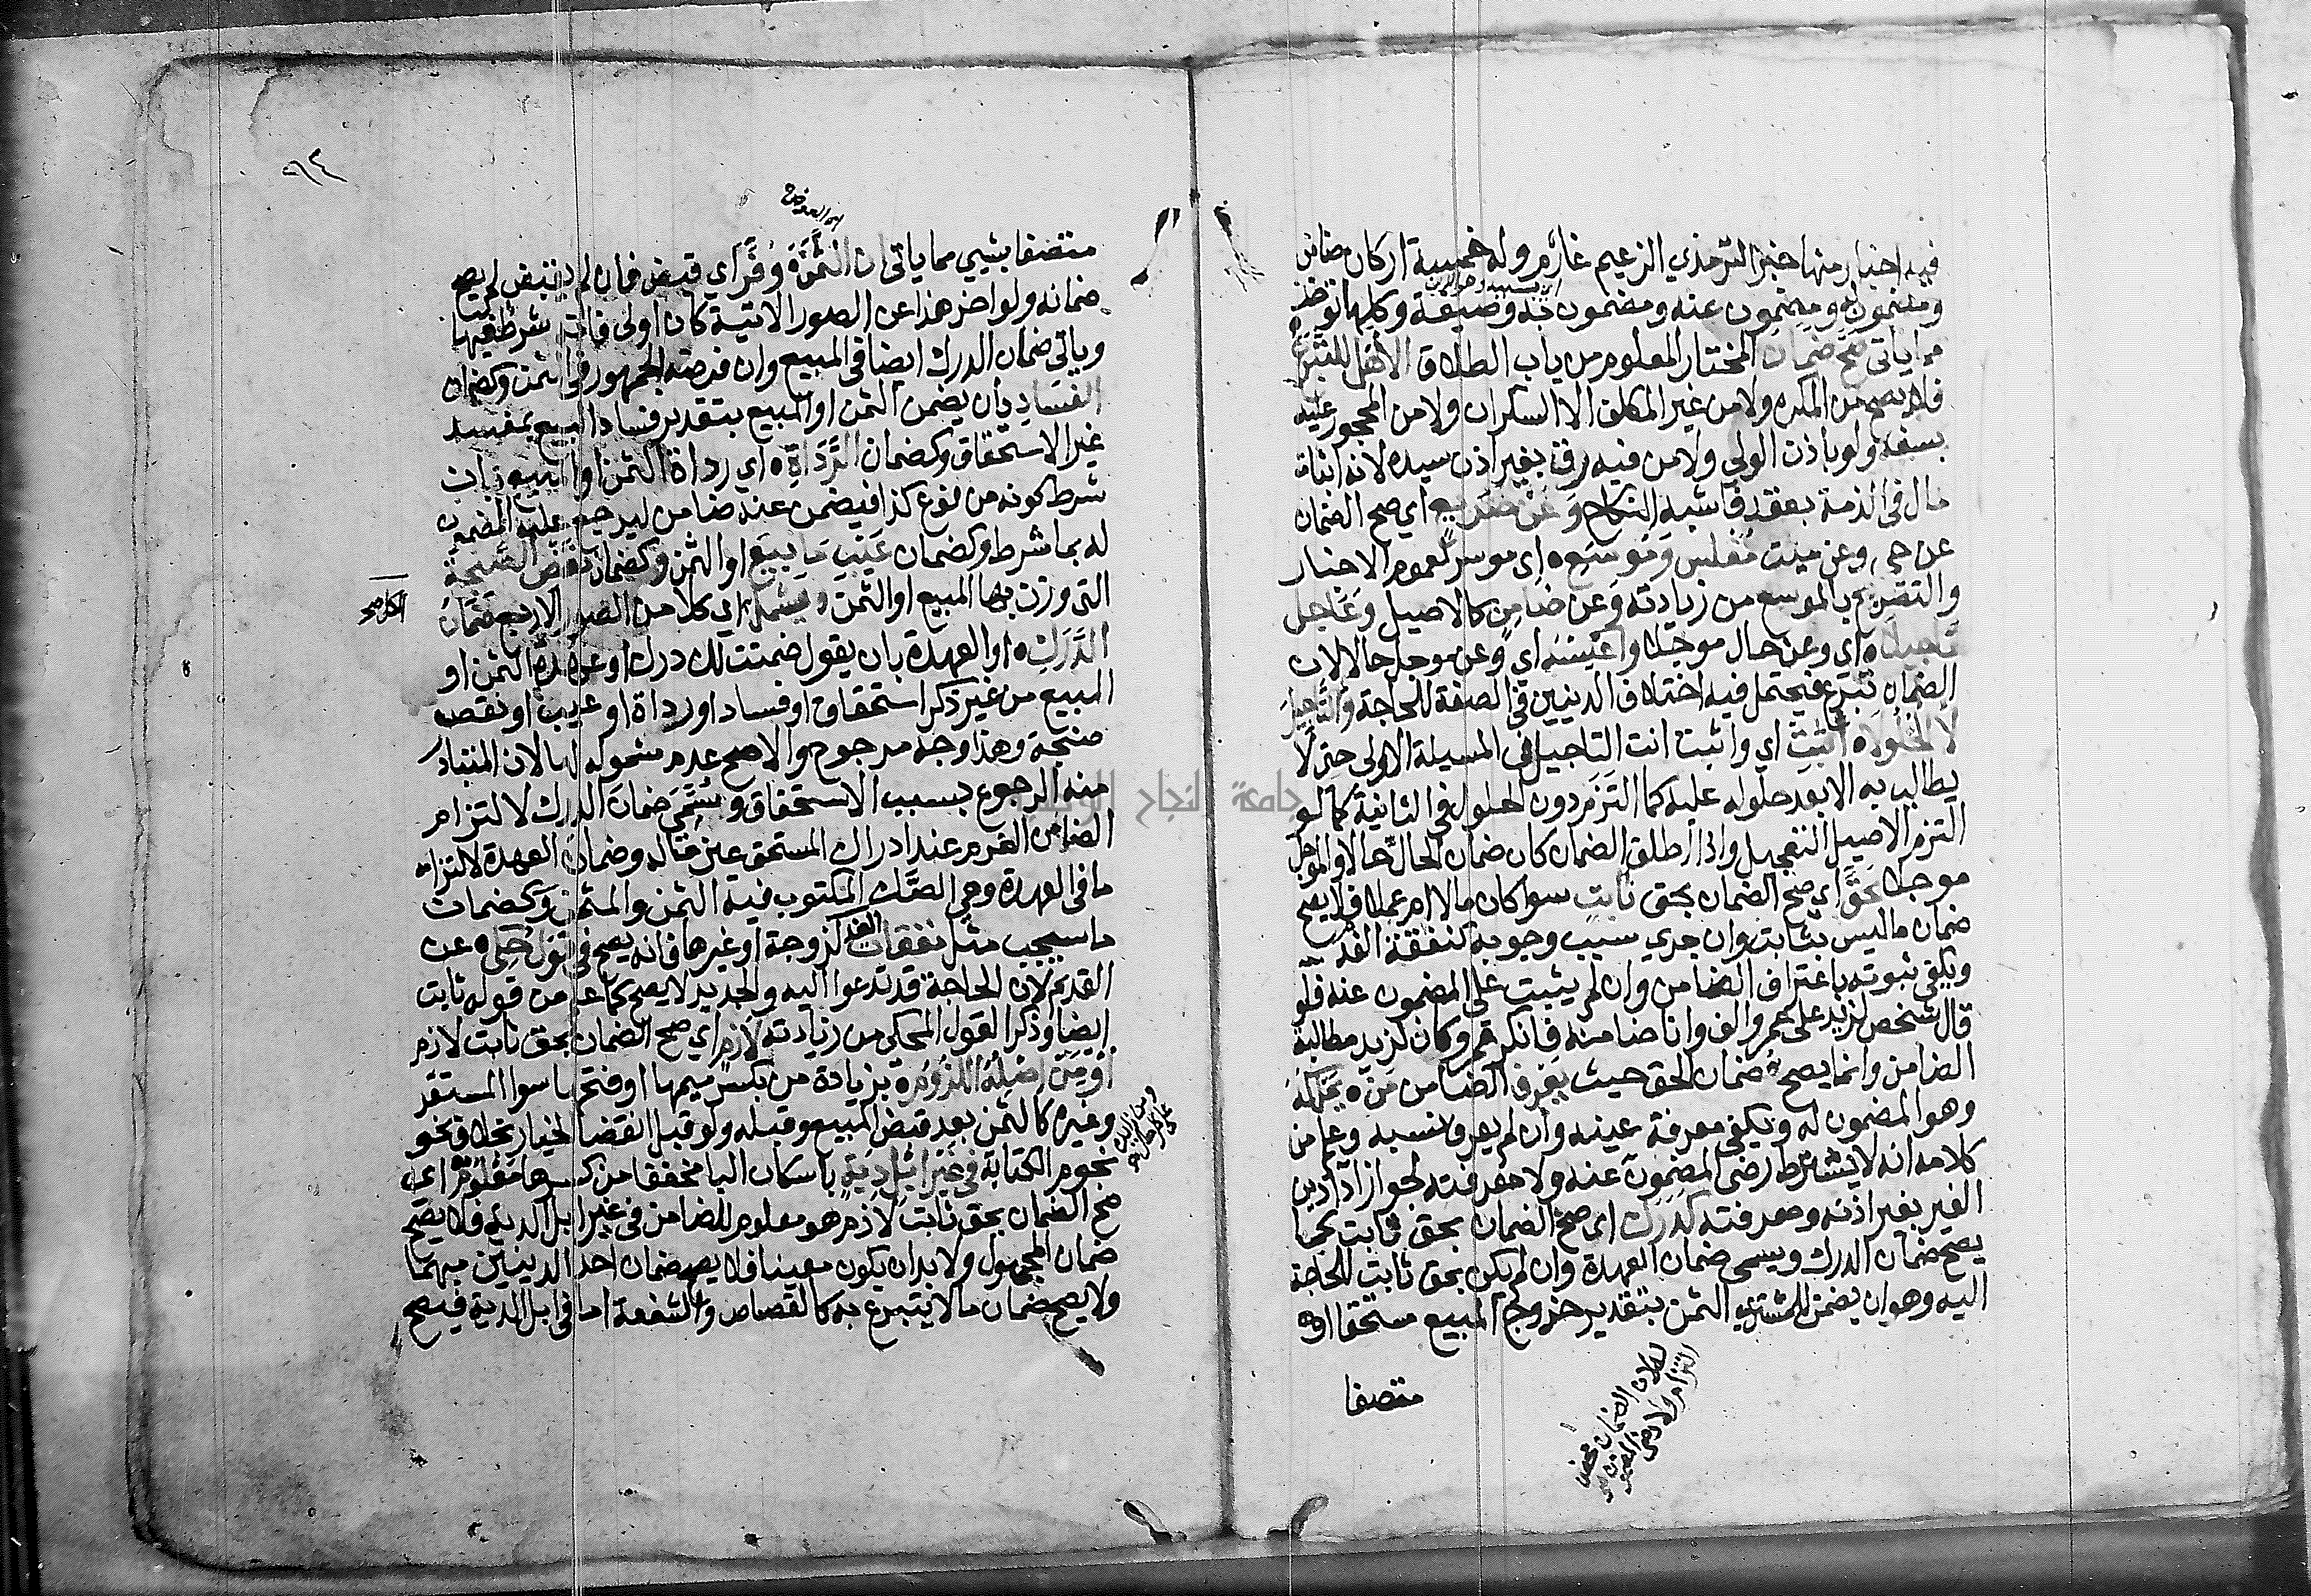 فيه اخبار منها خبر الترمذي الزعيم غارم وله خمسة اركان ضامن
ومضمون له ومضمون عنه ومضمون به وصيغة وكلها توخذ
مما ياتي صح ضمان المختار المعلوم من باب الطلاق الاهل للتبرع
فلا يصح من المكره ولا من غير المكلف الا السكران ولا من المحجور عليه
بسفه ولو باذن الولي ولا من فيه رق بغير اذن سيده لانه اثبات
مال في الذمة بعقد فاشبه النكاح وعن صريع اي صح الضمان
عن حي وعن ميت مفلس وموسع اي موسر لعموم الاخبار
والتصريح بالموسع من زيادته وعن ضامن كالاصيل وعاجل
تاجيلا اي وعن حال موجلا وعكسه اي وعن موجل حالا لان
الضمان تبرع فيحتمل فيه اختلاف الدينين في الصفة للحاجة والتاجيل
لا الحلول اثبت اي واثبت انت التاجيل في المسيلة الاولى حتى لا
يطالب به الا بعد حلوله عليه كما التزم دون الحلول في الثانية كما لو
التزم الاصيل التعجيل واذا اطلق الضمان كان ضمان الحال حالا والموجل
موجلا بحق اي صح الضمان بحق ثابت سوا كان مالا ام عملا فلا يصح
ضمان ما ليس بثابت وان جري سبب وجوبه كنفقة الغد
ويكفي ثبوته باعتراف الضامن وان لم يثبت على المضمون عنه فلو
قال شخص لزيد على عمرو الف وانا ضامنه فانكر عمرو كان لزيد مطالبة
الضامن وانما يصح ضمان الحق حيث يعرف الضامن من يحكمه
وهو المضمون له ويكفي معرفة عينه وان لم يعرف نسبه وعلم من
كلامه انه لا يشترط رضى المضمون عنه ولا معرفته لجواز ادا دين
الغير بغير اذنه ومعرفته كدرك اي صح الضمان بحق ثابت كما
يصح ضمان الدرك ويسمى ضمان العهدة وان لم يكن بحق ثابت للحاجة
اليه وهو ان يضمن للمشتري الثمن بتقدير خروج المبيع مستحقا او
متصفا
لان الضمان محض
التزام ولا رضى المضمون
٩٢
متصفا بشيي مما ياتي ان الثمن وفر اي قبض فان لم يقبض لم يصح
ضمانه ولو اخر هذا عن الصور الاتية كان اولى فانه شرط فيها
وياتي ضمان الدرك ايضا في المبيع وان فرضه الجمهور في الثمن وكضمان
الفساد بان يضمن الثمن او المبيع بتقدير فساد البيع بمفسد
غير الاستحقاق وكضمان الرداة اي رداة الثمن او المبيع بان
شرط كونه من نوع كذا فيضمن عنه ضامن ليرجع عليه المضمون
له بما شرط وكضمان عيب ما بيع او الثمن وكضمان نقص الصنجة
التي وزن بها المبيع او الثمن ويشمل اي كلا من الصور الاربع ضمان
الدرك او العهدة بان يقول ضمنت لك درك او عهدة الثمن او
المبيع من غير ذكر استحقاق او فساد او رداة او عيب او نقص
صنجة وهذا وجه مرجوح والاصح عدم شموله لها لان المتبادر
منه الرجوع بسبب الاستحقاق ويسمى ضمان الدرك لالتزام
الضامن الغرم عند ادراك المستحق عين ماله وضمان العهدة لالتزامه
ما في العهدة وهي الصك المكتوب فيه الثمن والمثمن وكضمان
ما سيجب مثل نفقات الغد لزوجة او غيرها فانه يصح في قول حكي عن
القديم لان الحاجة قد تدعوا اليه والجديد لا يصح كما علم من قوله ثابت
ايضا وذكر القول المحكي من زيادته لازم اي صح الضمان بحق ثابت لازم
او من اصله اللزوم بزيادة من بكسر ميمها او فتحها سوا المستقر
وغيره كالثمن بعد قبض المبيع وقبله ولو قبل انقضا الخيار بخلاف نحو
نجوم الكتابة في غير ابل دية باسكان اليا مخففا من كسرها معلوم اي
صح الضمان بحق ثابت لازم هو معلوم للضامن في غير ابل الدية فلا يصح
ضمان المجهول ولا بد ان يكون معينا فلا يصح ضمان احد الدينين مبهما
ولا يصح ضمان ما لا يتبرع به كالقصاص والشفعة اما في ابل الدية فيصح